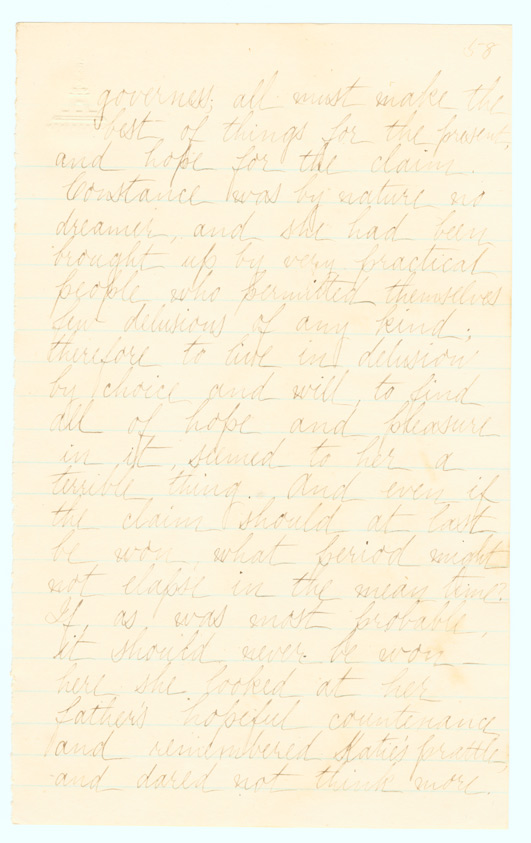 58
governess; all must make the
best of things for the present,
and hope for the claim.
Constance was by nature no
dreamer, and she had been
brought up by very practical
people who permitted themselves
few delusions of any kind;
therefore to live in delusion
by choice and will, to find
all of hope and pleasure
in it, seemed to her a
terrible thing. And even if
the claim should at last
be won, what period might
not elapse in the mean time?
If, as was most probable,
it should never be won —
here she looked at her
father's hopeful countenance
and remembered Katie's prattle,
and dared not think more.